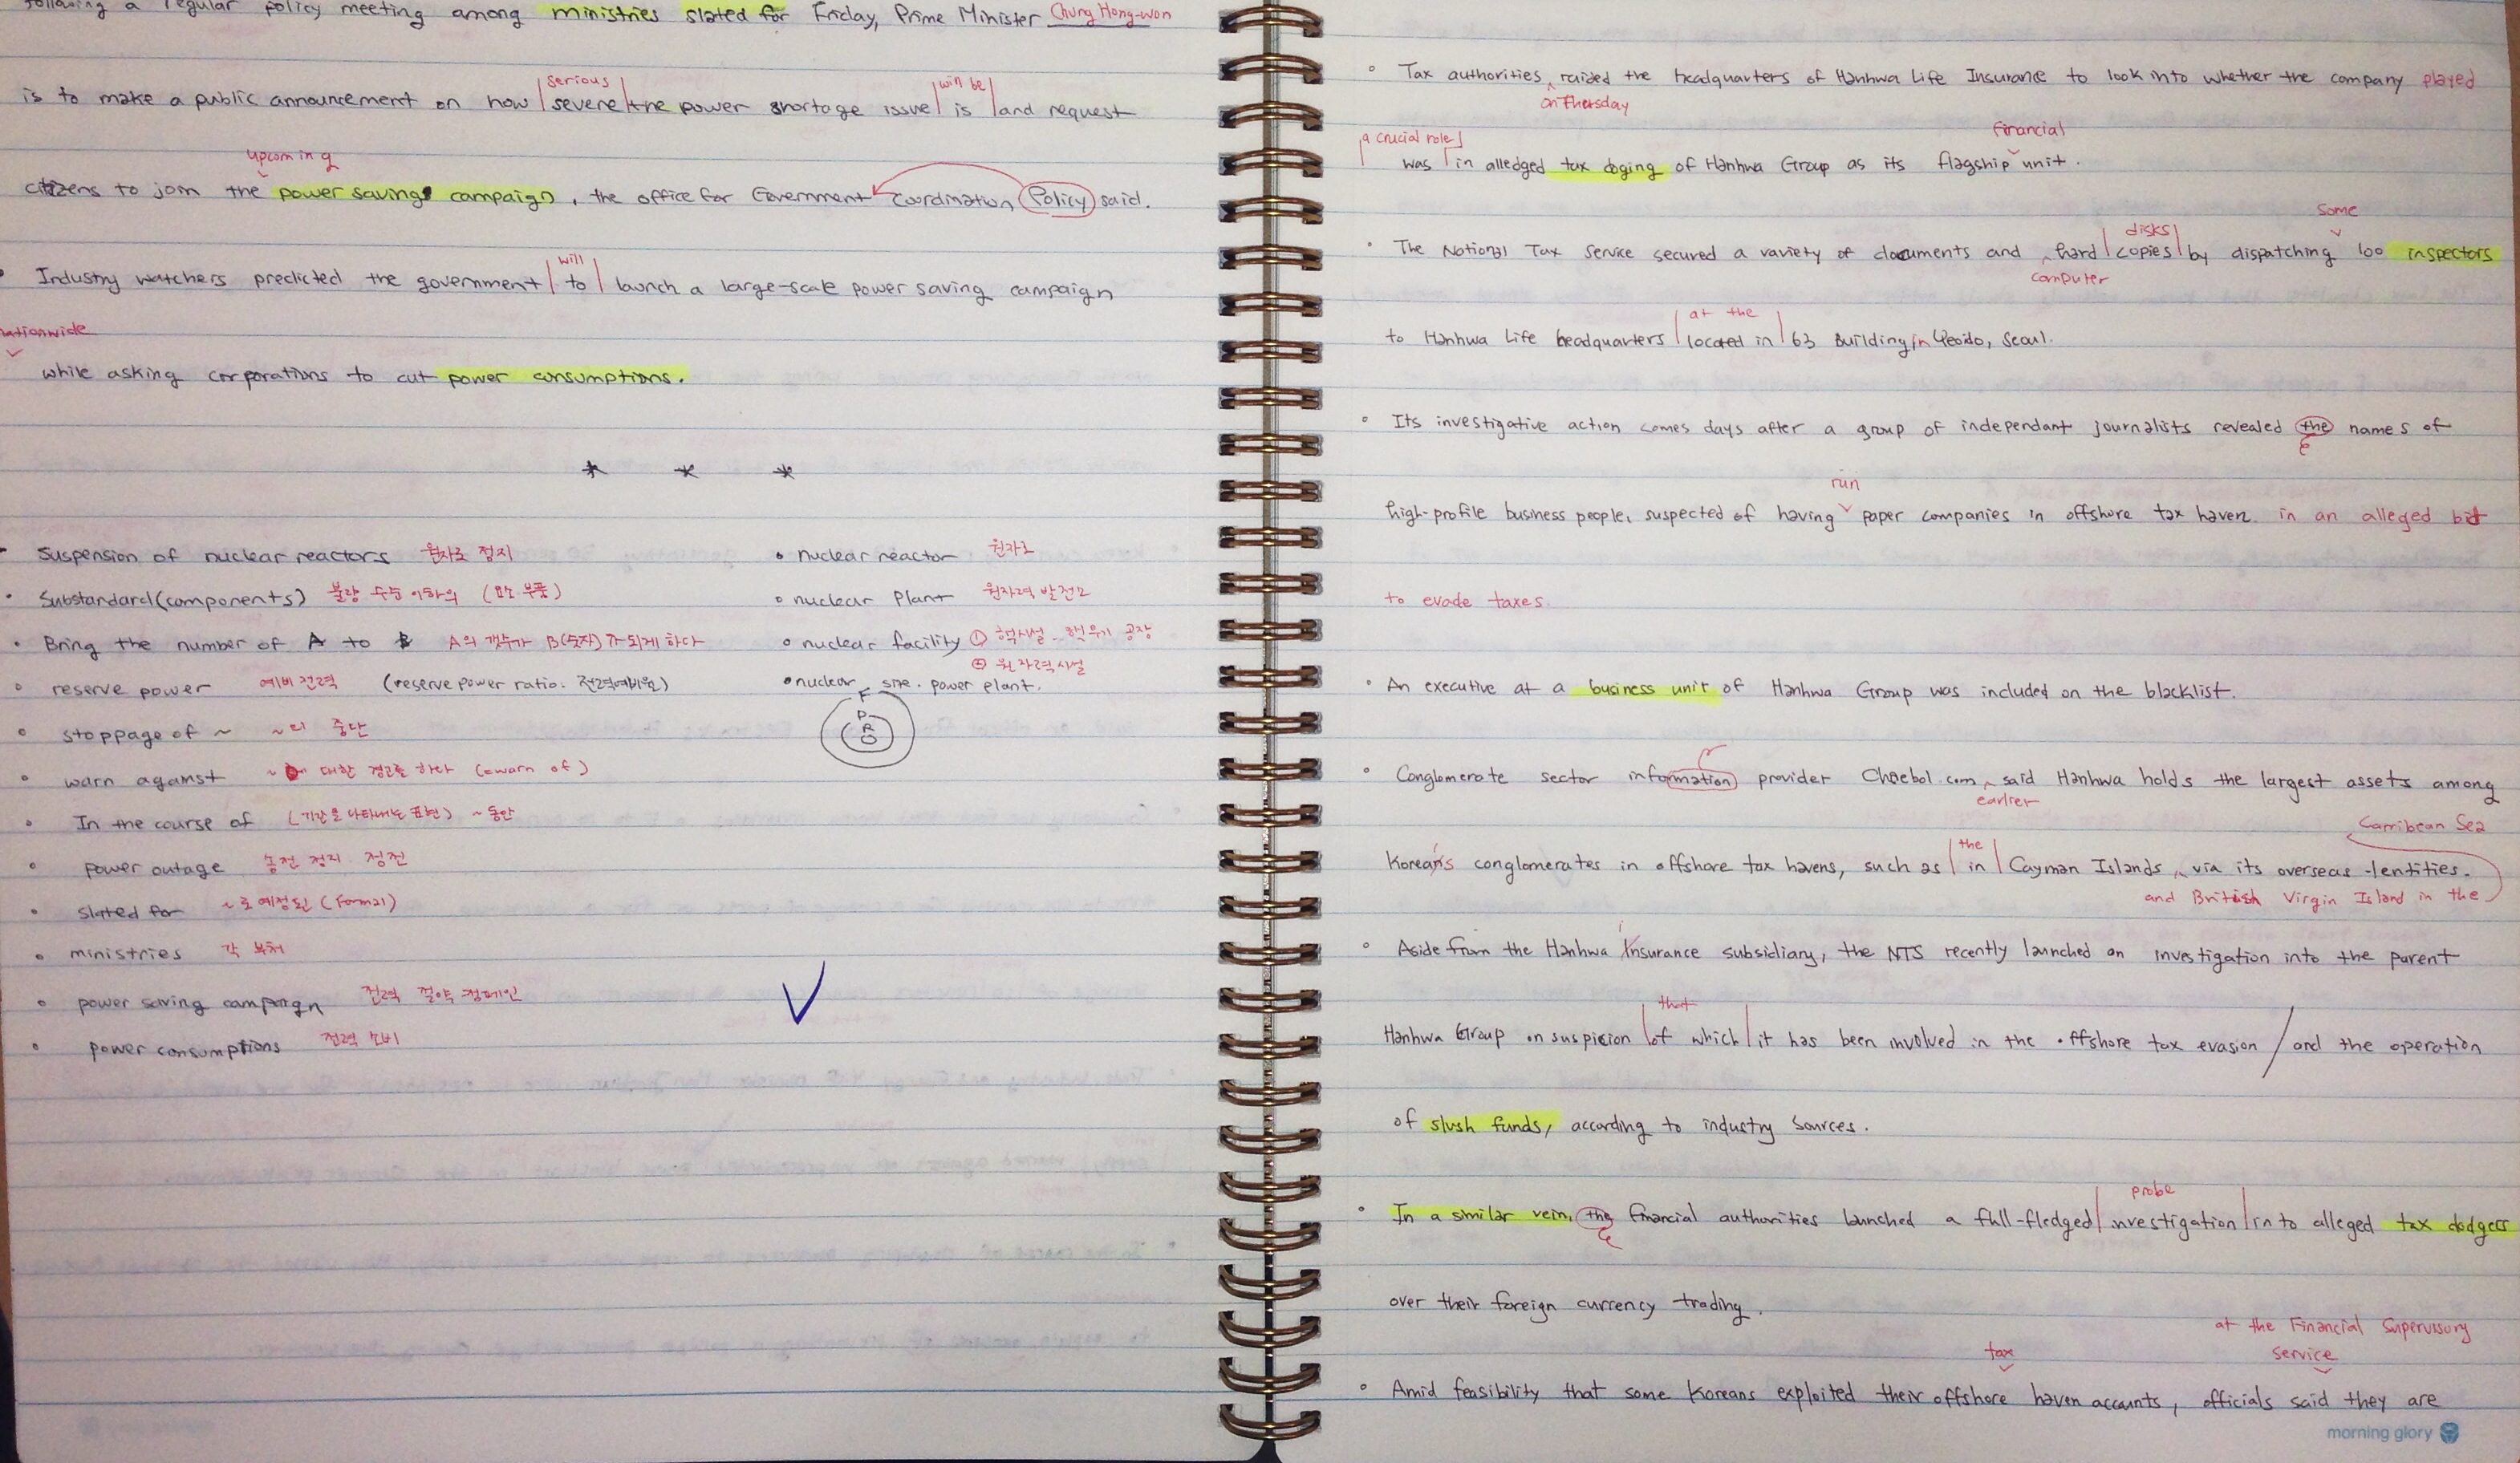 following a regular policy meeting among ministries slated for Friday, Prime Minister Chung Hong-won
serious
will be
is to make a public announcement on how severe the power shortage issue is and request
upcoming
citizens to join the power saving campaign, the office for Government Coordination Policy said.
will
Industry watchers predicted the government to launch a large-scale power saving campaign
nationwide
while asking corporations to cut power consumptions.
* * *
Suspension of nuclear reactors 원자로 정지
Substandard (components) 불량 수준 이하의 (요소 부품)
Bring the number of A to B A의 갯수가 B(숫자)가 되게 하다
reserve power 예비 전력 (reserve power ratio. 전력예비율)
stoppage of ~ ~의 중단
warn against ~에 대한 경고를 하다 (=warn of)
In the course of (기간을 나타내는 표현) ~동안
power outage 송전 정지. 정전
slated for ~로 예정된 (formal)
ministries 각 부처
power saving campaign 전력 절약 캠페인
power consumptions 전력 소비
nuclear reactor 원자로
nuclear plant 원자력 발전소
nuclear facility ① 핵시설. 핵무기 공장
② 원자력시설
nuclear size. power plant.
F
P
R
Tax authorities raided the headquarters of Hanhwa Life Insurance to look into whether the company played
on Thursday
a crucial role
financial
was in alledged tax doging of Hanhwa Group as its flagship unit.
some
disks
The National Tax Service secured a variety of documents and hard copies by dispatching 100 inspectors
computer
at the
to Hanhwa Life headquarters located in 63 Building in Yeoido, Seoul.
Its investigative action comes days after a group of independant journalists revealed the names of
run
high-profile business people, suspected of having paper companies in offshore tax haven. in an alleged bid
to evade taxes.
An executive at a business unit of Hanhwa Group was included on the blacklist.
Conglomerate sector information provider Chaebol.com said Hanhwa holds the largest assets among
earlier
Carribean Sea
the
Korean's conglomerates in offshore tax havens, such as in Cayman Islands, via its overseas entities.
and British Virgin Island in the
i
Aside from the Hanhwa Insurance subsidiary, the NTS recently launched an investigation into the parent
that
Hanhwa Group on suspicion of which it has been involved in the offshore tax evasion / and the operation
of slush funds, according to industry sources.
probe
In a similar vein, the financial authorities launched a full-fledged investigation into alleged tax dodgers
over their foreign currency trading.
at the Financial Supervisory
tax
service
Amid feasibility that some Koreans exploited their offshore haven accounts, officials said they are
morning glory